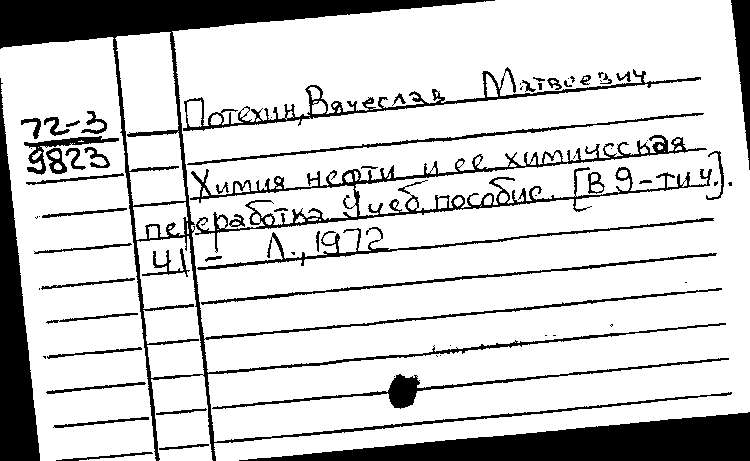 Потехин, Вячеслав Матвеевич.
72-3
9823
Химия нефти и ее химическая
переработка. Учеб. пособие. [В 9-ти ч.].
Ч.1 - Л., 1972